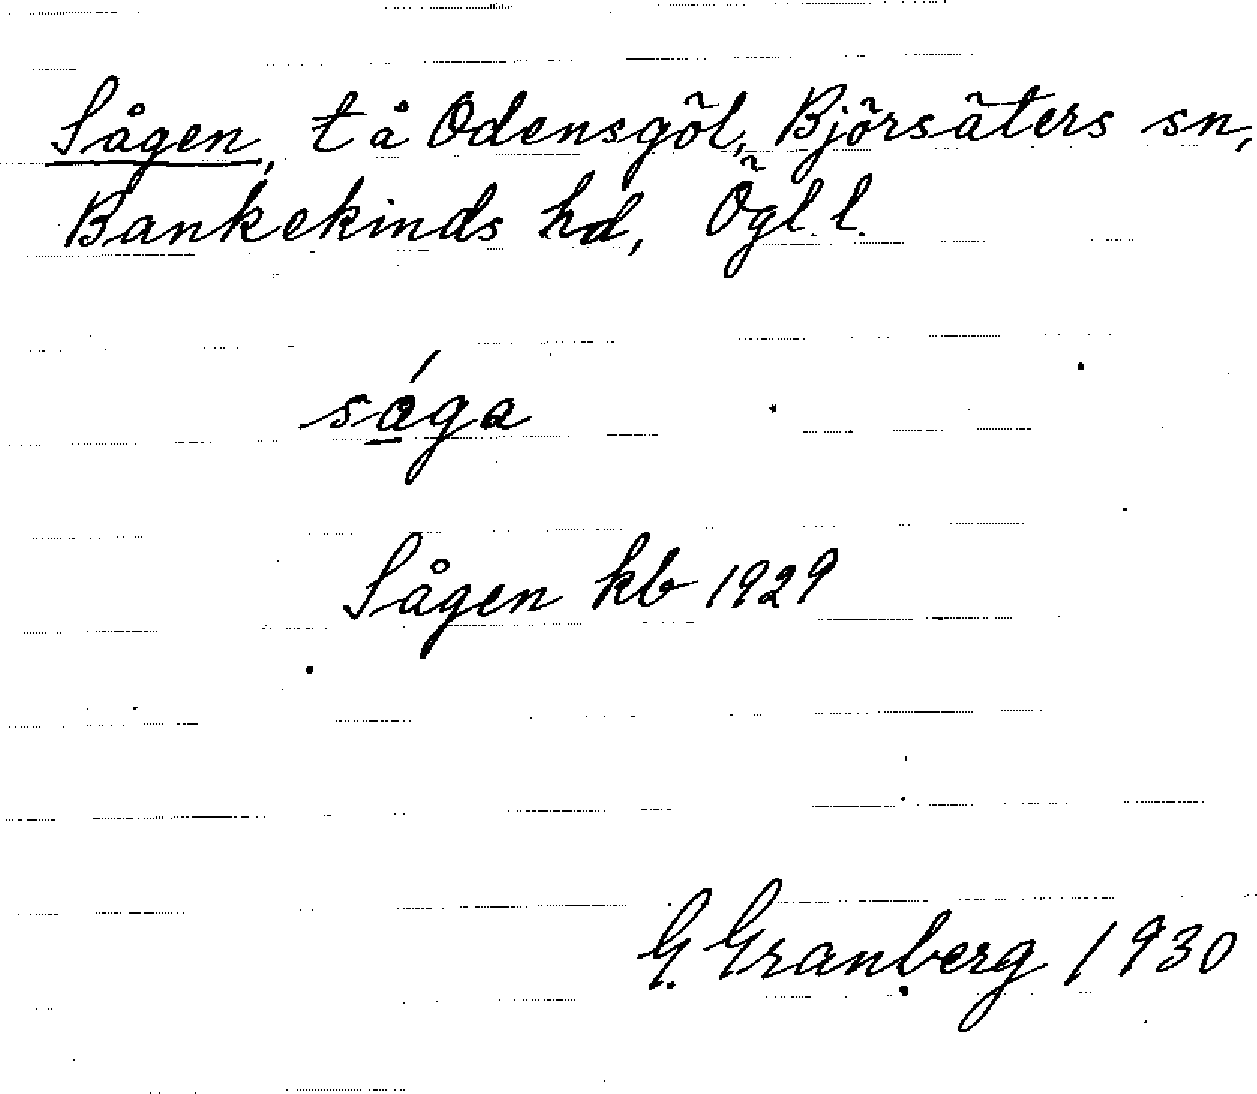 Sågen, t å Odensgöl, Björsäters sn,
Bankekinds hd, Ögl. l.
såga
Sågen kb 1929
G. Granberg 1930